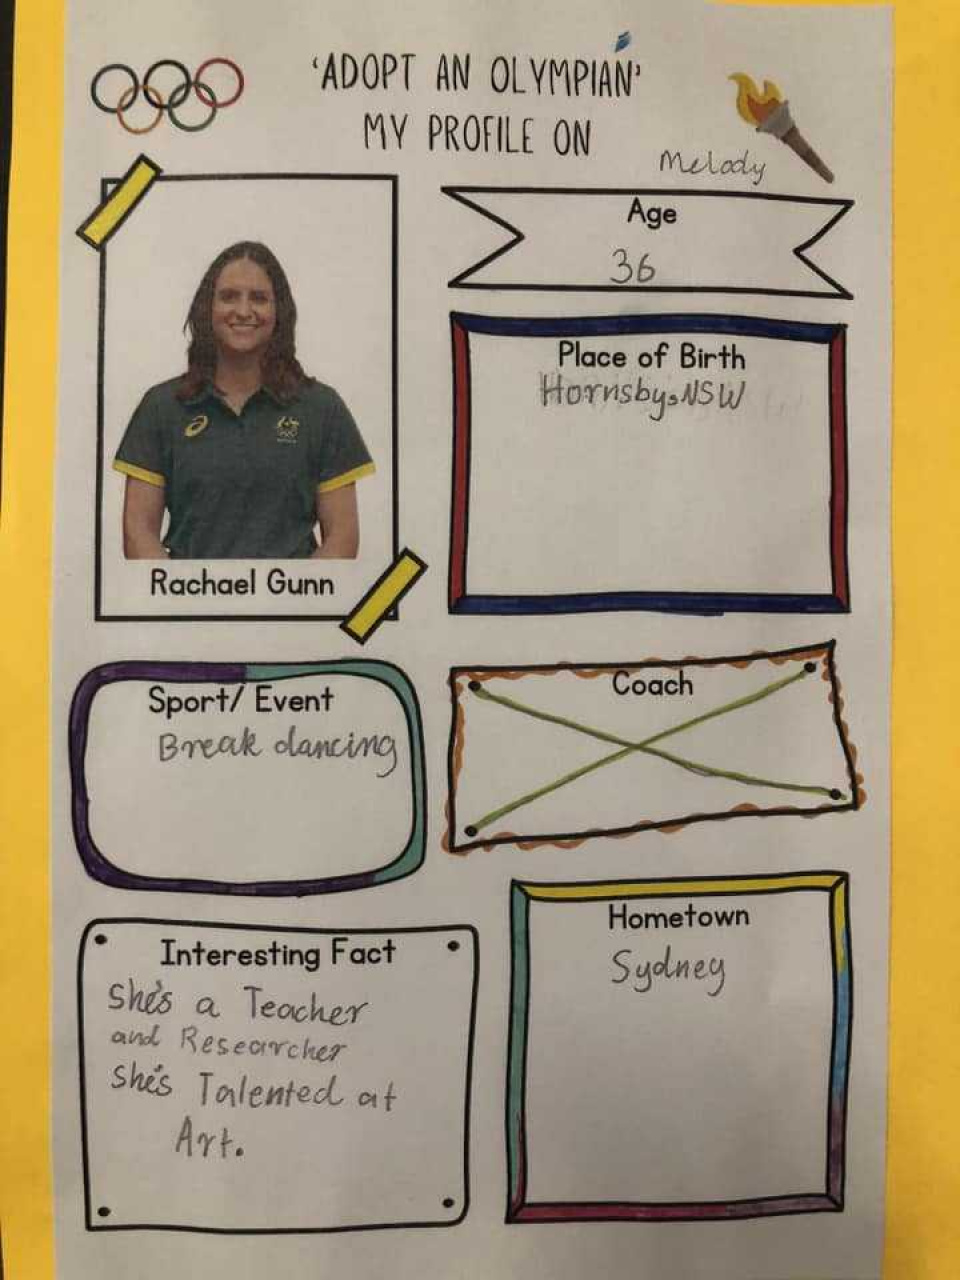 'ADOPT AN OLYMPIAN'
MY PROFILE ON
Melody
Age
36
Place of Birth
Hornsby,NSW
Rachael Gunn
Sport/ Event
Break dancing
Coach
Interesting Fact
She's a Teacher
and Researcher
She's Talented at
Art.
Hometown
Sydney